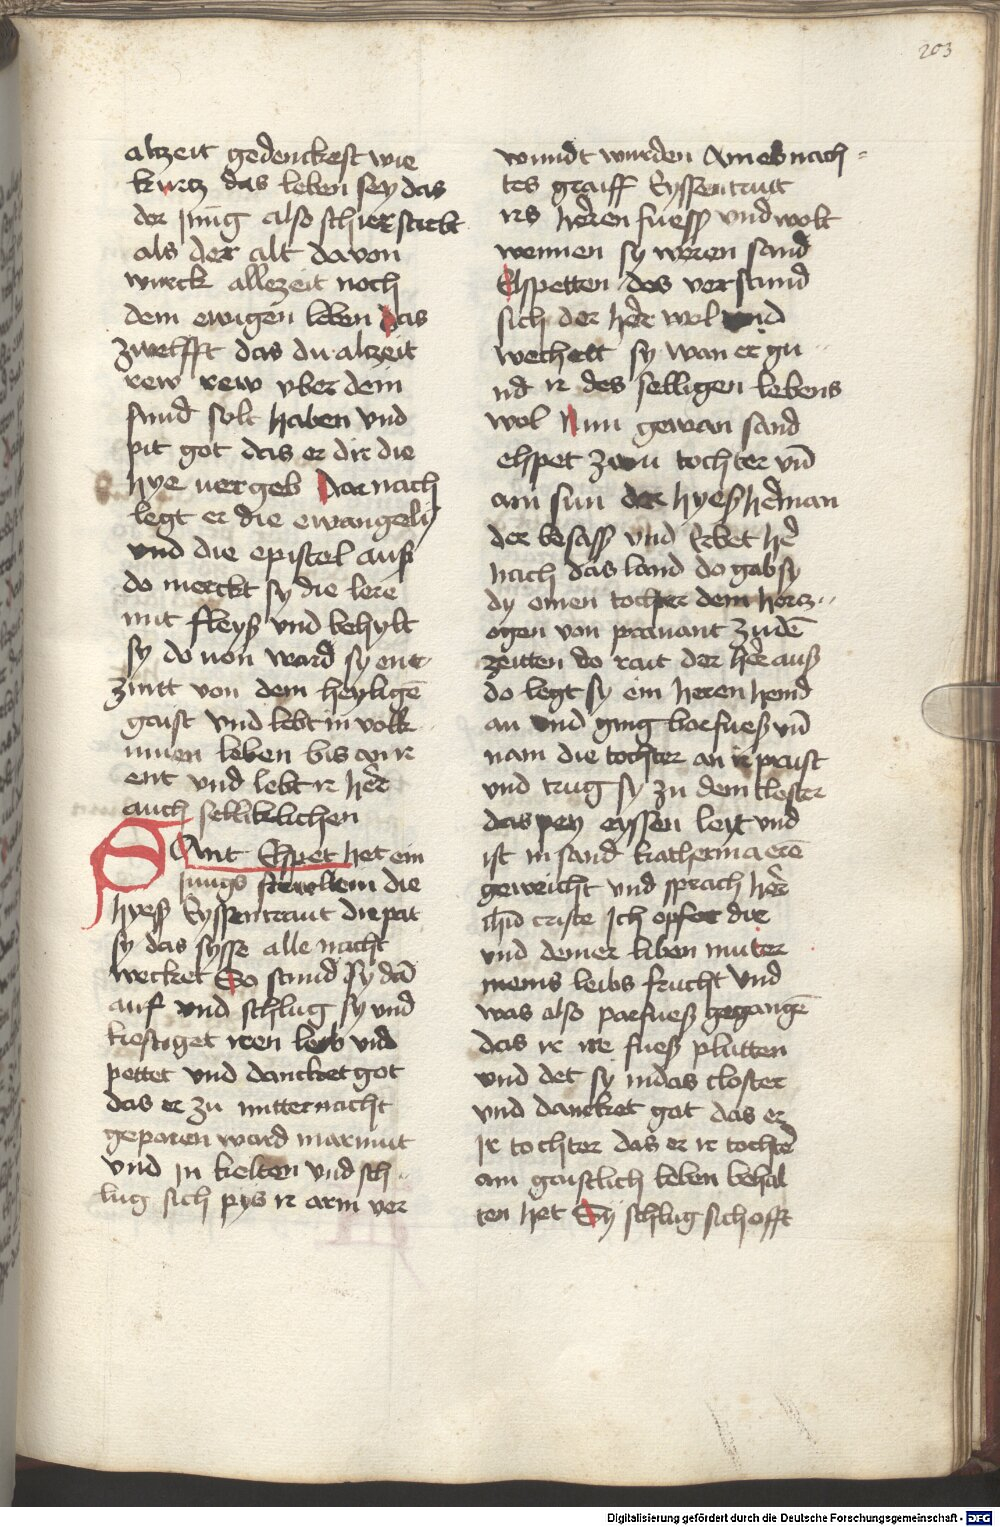 203
altzeit gedenckest wie
kurtz das leben sey das
der jung also schier stirbt
als der alt davon
wurck allezeit noch
dem ewigen leben das
zwelfft das du altzeit
rew rew vber dein
sund solt haben vnd
pit got das er dir die
hye vergeb Darnach
legt er die ewangelij
vnd die epistel auß
do merckt sy die lere
mit fleyß vnd behylt
sy do von ward sy ent
zintt von dem heyligē
gaist vnd lebt in volk
umen leben bis an ir
ent vnd lebt ir her̄
auch selliklichen
SAnt Elspet het ein
jungs frewlein die
hyess Eyssentraut die pat
sy das sysse alle nacht
wecket So stund sy dā
auf vnd schlug sy vnd
kestiget iren leib vnd
pettet vnd dancket got
das er zu mitternacht
geparen ward in armut
vnd in kelten vnd sch
lug sich pys ir arm ver
wundt wurden Am eb nach
tes graiff Eyssentrut
irs heren fuess vnd wolt
wennen sy weren sand
Elspetten des verstund
sich der her̄ wol vnd
wechett sy wan er gu
nd ir des selligen lebens
wol Nun gewan sand
elspet zwu tochter vn̄
ain sun der hyeß herman
der besass vnd Erbet her̄
nach das land do gab sy
dy einen tochter dem hertz
ogen von pravant zu dē
zeitten do rait der her̄ auß
do legt sy ein heren hemd
an vnd ging barfueß vn̄
nam die tochter an ir prust
vnd trug sy zu dem closter
das pey eyssen leyt vnd
ist in sand katherina erē
geweicht vnd sprach her̄
ihū criste Ich opfer dir
vnd deiner liben muter
meins leibs frucht vnd
was also parfueß gegangē
das ir ire fueß plutten
vnd det sy in das closter
vnd dancket got das er
ir tochter das er ir tochter̄
ain gaistlich leben behal
ten het Sy schlug sich offt
Digitalisierung gefördert durch die Deutsche Forschungsgemeinschaft - DFG